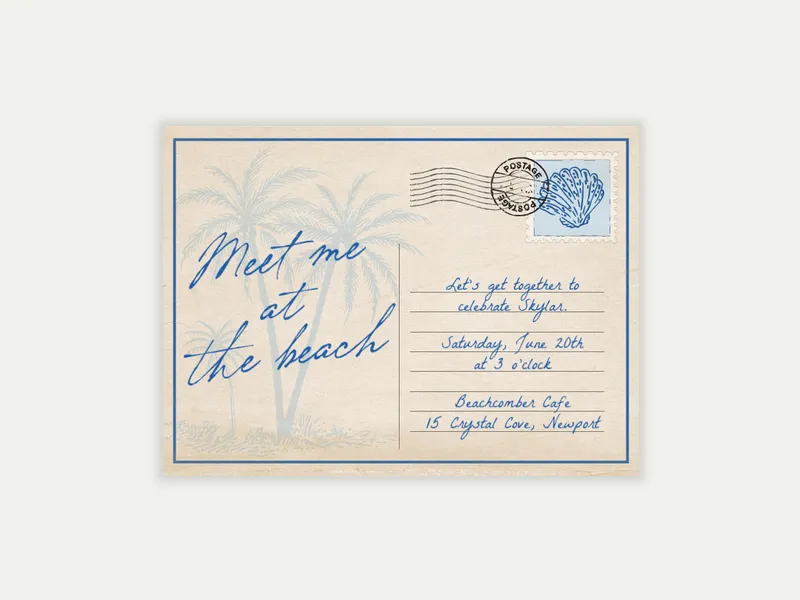 Meet me
at
the beach
POSTAGE
POSTAGE
Let's get together to
celebrate Skylar.
Saturday, June 20th
at 3 o'clock
Beachcomber Cafe
15 Crystal Cove, Newport